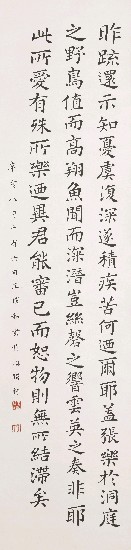 昨疏還示知憂虞復深遂積疾苦何迺爾耶蓋張樂於洞庭
之野鳥值而高翔魚聞而深潛豈絲磬之響雲英之奏非耶
此所愛有殊所樂迺異君能審己而恕物則無所結滯矣